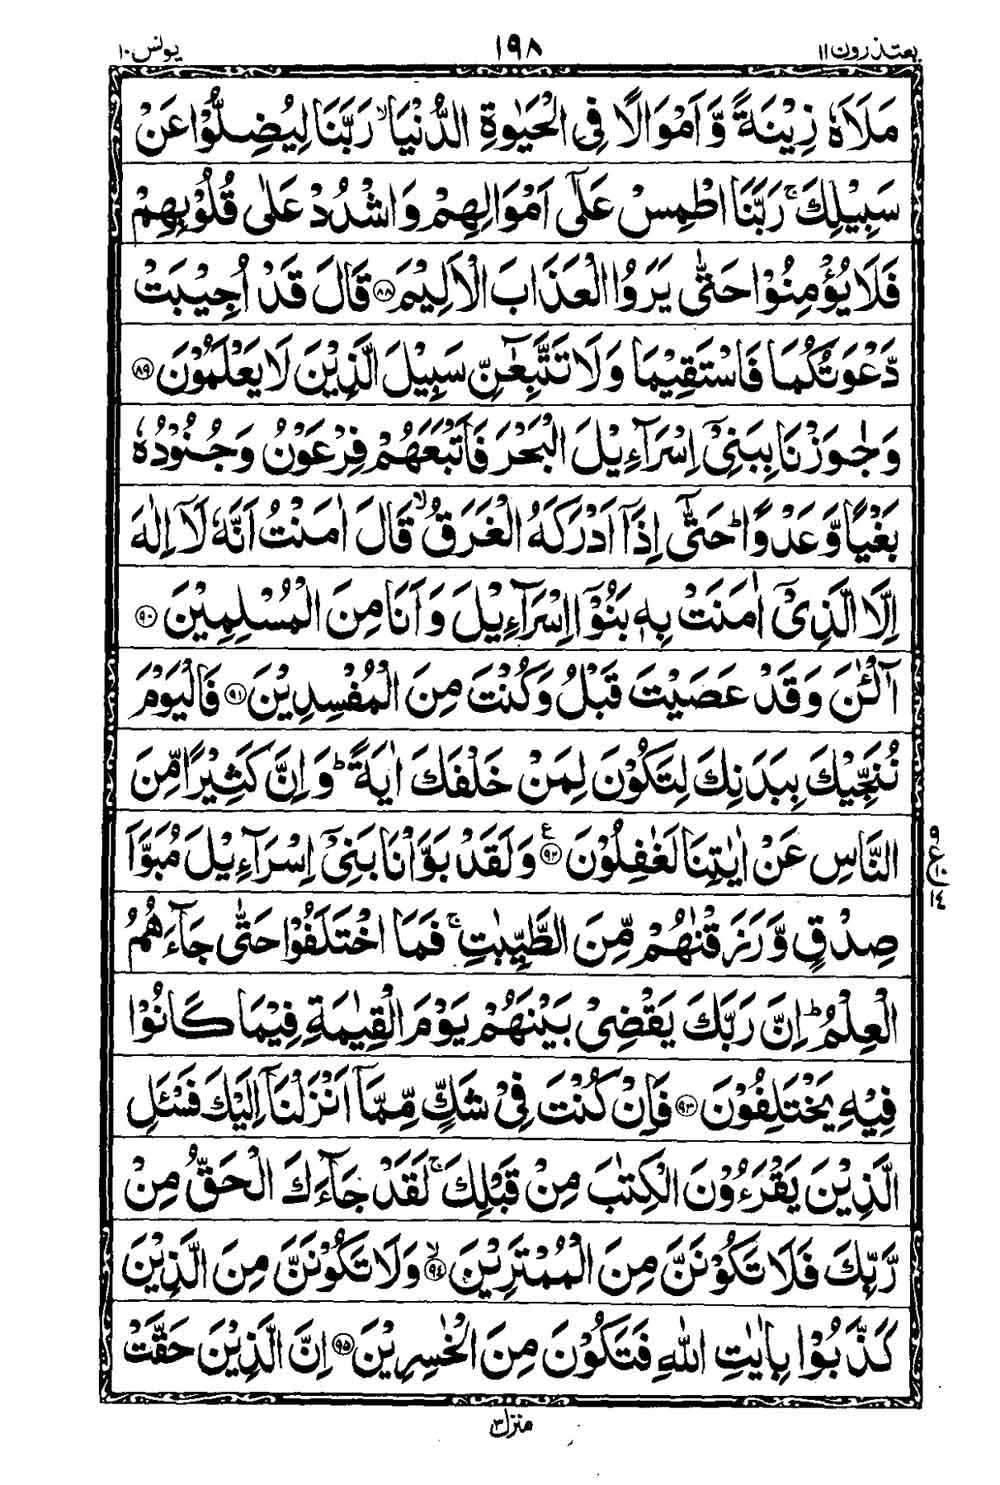 یعتذرون ۱۱ ۱۹۸ یونس ۱۰
مَلَاَهٗ زِیْنَةً وَّاَمْوَالًا فِی الْحَیٰوةِ الدُّنْیَا ۙ رَبَّنَا لِیُضِلُّوْا عَنْ
سَبِیْلِكَ ۚ رَبَّنَا اطْمِسْ عَلٰۤی اَمْوَالِهِمْ وَاشْدُدْ عَلٰی قُلُوْبِهِمْ
فَلَا یُؤْمِنُوْا حَتّٰی یَرَوُا الْعَذَابَ الْاَلِیْمَ ۝۸۸ قَالَ قَدْ اُجِیْبَتْ
دَّعْوَتُكُمَا فَاسْتَقِیْمَا وَلَا تَتَّبِعٰٓنِّ سَبِیْلَ الَّذِیْنَ لَا یَعْلَمُوْنَ ۝۸۹
وَجٰوَزْنَا بِبَنِیْۤ اِسْرَآءِیْلَ الْبَحْرَ فَاَتْبَعَهُمْ فِرْعَوْنُ وَجُنُوْدُهٗ
بَغْیًا وَّعَدْوًا ؕ حَتّٰۤی اِذَاۤ اَدْرَكَهُ الْغَرَقُ ۙ قَالَ اٰمَنْتُ اَنَّهٗ لَاۤ اِلٰهَ
اِلَّا الَّذِیْۤ اٰمَنَتْ بِهٖ بَنُوْۤا اِسْرَآءِیْلَ وَاَنَا مِنَ الْمُسْلِمِیْنَ ۝۹۰
آٰلْـٰٔنَ وَقَدْ عَصَیْتَ قَبْلُ وَكُنْتَ مِنَ الْمُفْسِدِیْنَ ۝۹۱ فَالْیَوْمَ
نُنَجِّیْكَ بِبَدَنِكَ لِتَكُوْنَ لِمَنْ خَلْفَكَ اٰیَةً ؕ وَاِنَّ كَثِیْرًا مِّنَ
النَّاسِ عَنْ اٰیٰتِنَا لَغٰفِلُوْنَ ۝۹۲ ع وَلَقَدْ بَوَّاْنَا بَنِیْۤ اِسْرَآءِیْلَ مُبَوَّاَ
۹ ع ۱۰ ۱٤
صِدْقٍ وَّرَزَقْنٰهُمْ مِّنَ الطَّیِّبٰتِ ۚ فَمَا اخْتَلَفُوْا حَتّٰی جَآءَهُمُ
الْعِلْمُ ؕ اِنَّ رَبَّكَ یَقْضِیْ بَیْنَهُمْ یَوْمَ الْقِیٰمَةِ فِیْمَا كَانُوْا
فِیْهِ یَخْتَلِفُوْنَ ۝۹۳ فَاِنْ كُنْتَ فِیْ شَكٍّ مِّمَّاۤ اَنْزَلْنَاۤ اِلَیْكَ فَسْـَٔلِ
الَّذِیْنَ یَقْرَءُوْنَ الْكِتٰبَ مِنْ قَبْلِكَ ۚ لَقَدْ جَآءَكَ الْحَقُّ مِنْ
رَّبِّكَ فَلَا تَكُوْنَنَّ مِنَ الْمُمْتَرِیْنَ ۝۹٤ ۙ وَلَا تَكُوْنَنَّ مِنَ الَّذِیْنَ
كَذَّبُوْا بِاٰیٰتِ اللّٰهِ فَتَكُوْنَ مِنَ الْخٰسِرِیْنَ ۝۹۵ اِنَّ الَّذِیْنَ حَقَّتْ
منزل ۳